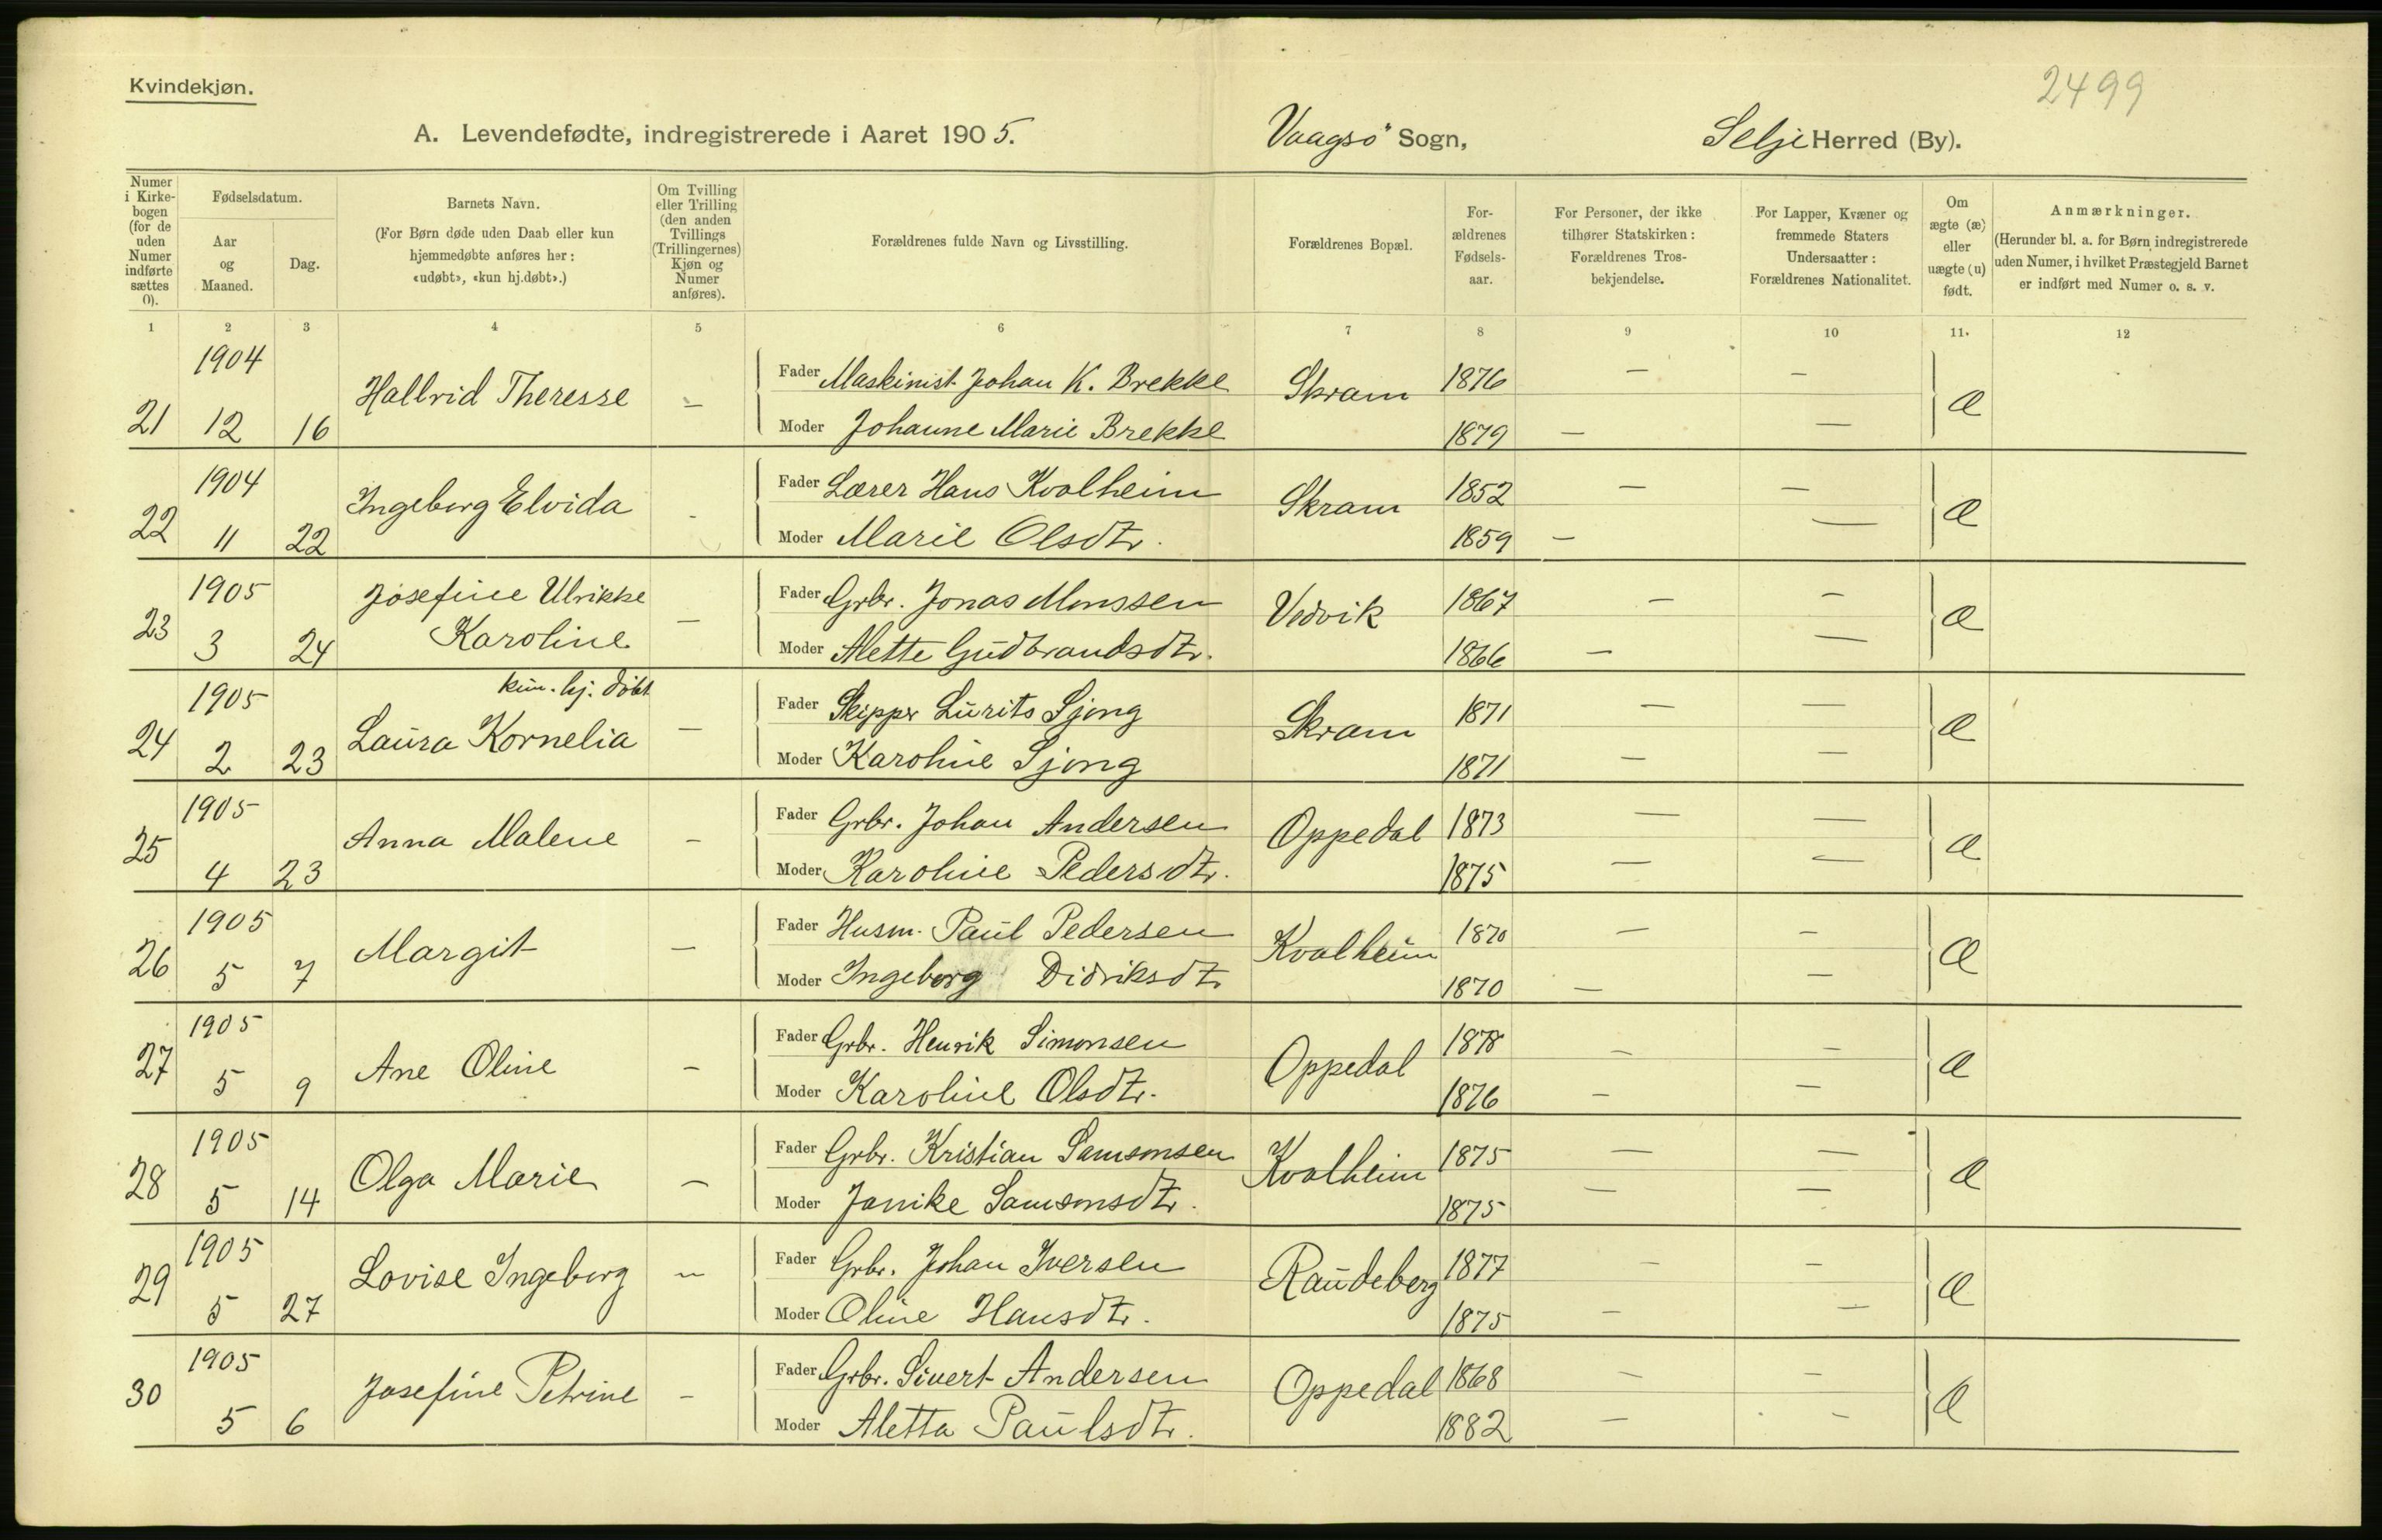 2499
Kvindekjøn.
A. Levendefødte, indregistrerede i Aaret 1905. Vaagsö Sogn, Selje Herred (By).
Numer i Kirke-bogen (for de uden Numer indførte sættes 0).
Fødselsdatum.
Aar og Maaned.
Dag.
Barnets Navn.
(For Børn døde uden Daab eller kun
hjemmedøbte anføres her:
«udøbt», «kun hj.døbt».)
Om Tvilling
eller Trilling
(den anden
Tvillings
(Trillingernes)
Kjøn og
Numer
anføres).
Forældrenes fulde Navn og Livsstilling.
Forældrenes Bopæl.
For-
ældrenes
Fødsels-
aar.
For Personer, der ikke
tilhører Statskirken:
Forældrenes Tros-
bekjendelse.
For Lapper, Kvæner og
fremmede Staters
Undersaatter:
Forældrenes Nationalitet.
Om
ægte (æ)
eller
uægte (u)
født.
Anmærkninger.
(Herunder bl. a. for Børn indregistrerede
uden Numer, i hvilket Præstegjeld Barnet
er indført med Numer o. s. v.
1 2 3 4 5 6 7 8 9 10 11. 12
1904 Fader Maskinist Johan K. Brekke Skram 1876 — —
21 12 16 Hallrid Theresse — Moder Johanne Marie Brekke 1879 — — æ
1904 Fader Lærer Hans Kvalheim Skram 1852 — —
22 11 22 Ingeborg Elvida - Moder Marie Olsdtr. 1859 — — æ
1905 Josefine Ulrikke Fader Grbr. Jonas Monssen Vedvik 1867 — —
23 3 24 Karoline — Moder Alette Gudbrandsdtr. 1866 — — æ
kun. hj. döbt
1905 Fader Skipper Lurits Sjong Skram 1871 — —
24 2 23 Laura Kornelia — Moder Karoline Sjong 1871 — — æ
1905 Fader Grbr. Johan Andersen Oppedal 1873 — —
25 4 23 Anna Malene - Moder Karoline Pedersdtr. 1875 — — æ
1905 Fader Husm. Paul Pedersen Kvalheim 1870 — —
26 5 7 Margit — Moder Ingeborg Didriksdtr 1870 — — æ
1905 Fader Grbr. Henrik Simonsen Oppedal 1878 — —
27 5 9 Ane Oline - Moder Karoline Olsdtr. 1876 — — æ
1905 Fader Grbr. Kristian Samsonsen Kvalheim 1875 — —
28 5 14 Olga Marie — Moder Janike Samsonsdtr. 1875 — — æ
1905 Fader Grbr. Johan Iversen Raudeberg 1877 — —
29 5 27 Lovise Ingeborg — Moder Oline Hansdtr. 1875 — — æ
1905 Fader Grbr. Sivert Andersen Oppedal 1868 — —
30 5 6 Josefine Petrine - Moder Aletta Paulsdtr. 1882 — — æ